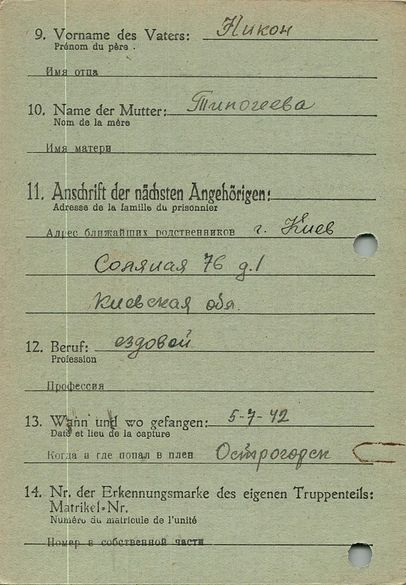 9. Vorname des Vaters: Никон
Prénom du père .
Имя отца
10. Name der Mutter: Типогеева
Nom de la mère
Имя матери
11. Anschrift der nächsten Angehörigen:
Adresse de la famille du prisonnier
Адрес ближайших родственников г. Киев
Соляная 76 д.1
Киевская обл.
12. Beruf: ездовой
Profession
Профессия
13. Wann und wo gefangen: 5-7-42
Date et lieu de la capture
Когда и где попал в плен Острогорск
14. Nr. der Erkennungsmarke des eigenen Truppenteils:
Matrikel-Nr.
Numéro du matricule de l'unité
Номер в собственной части